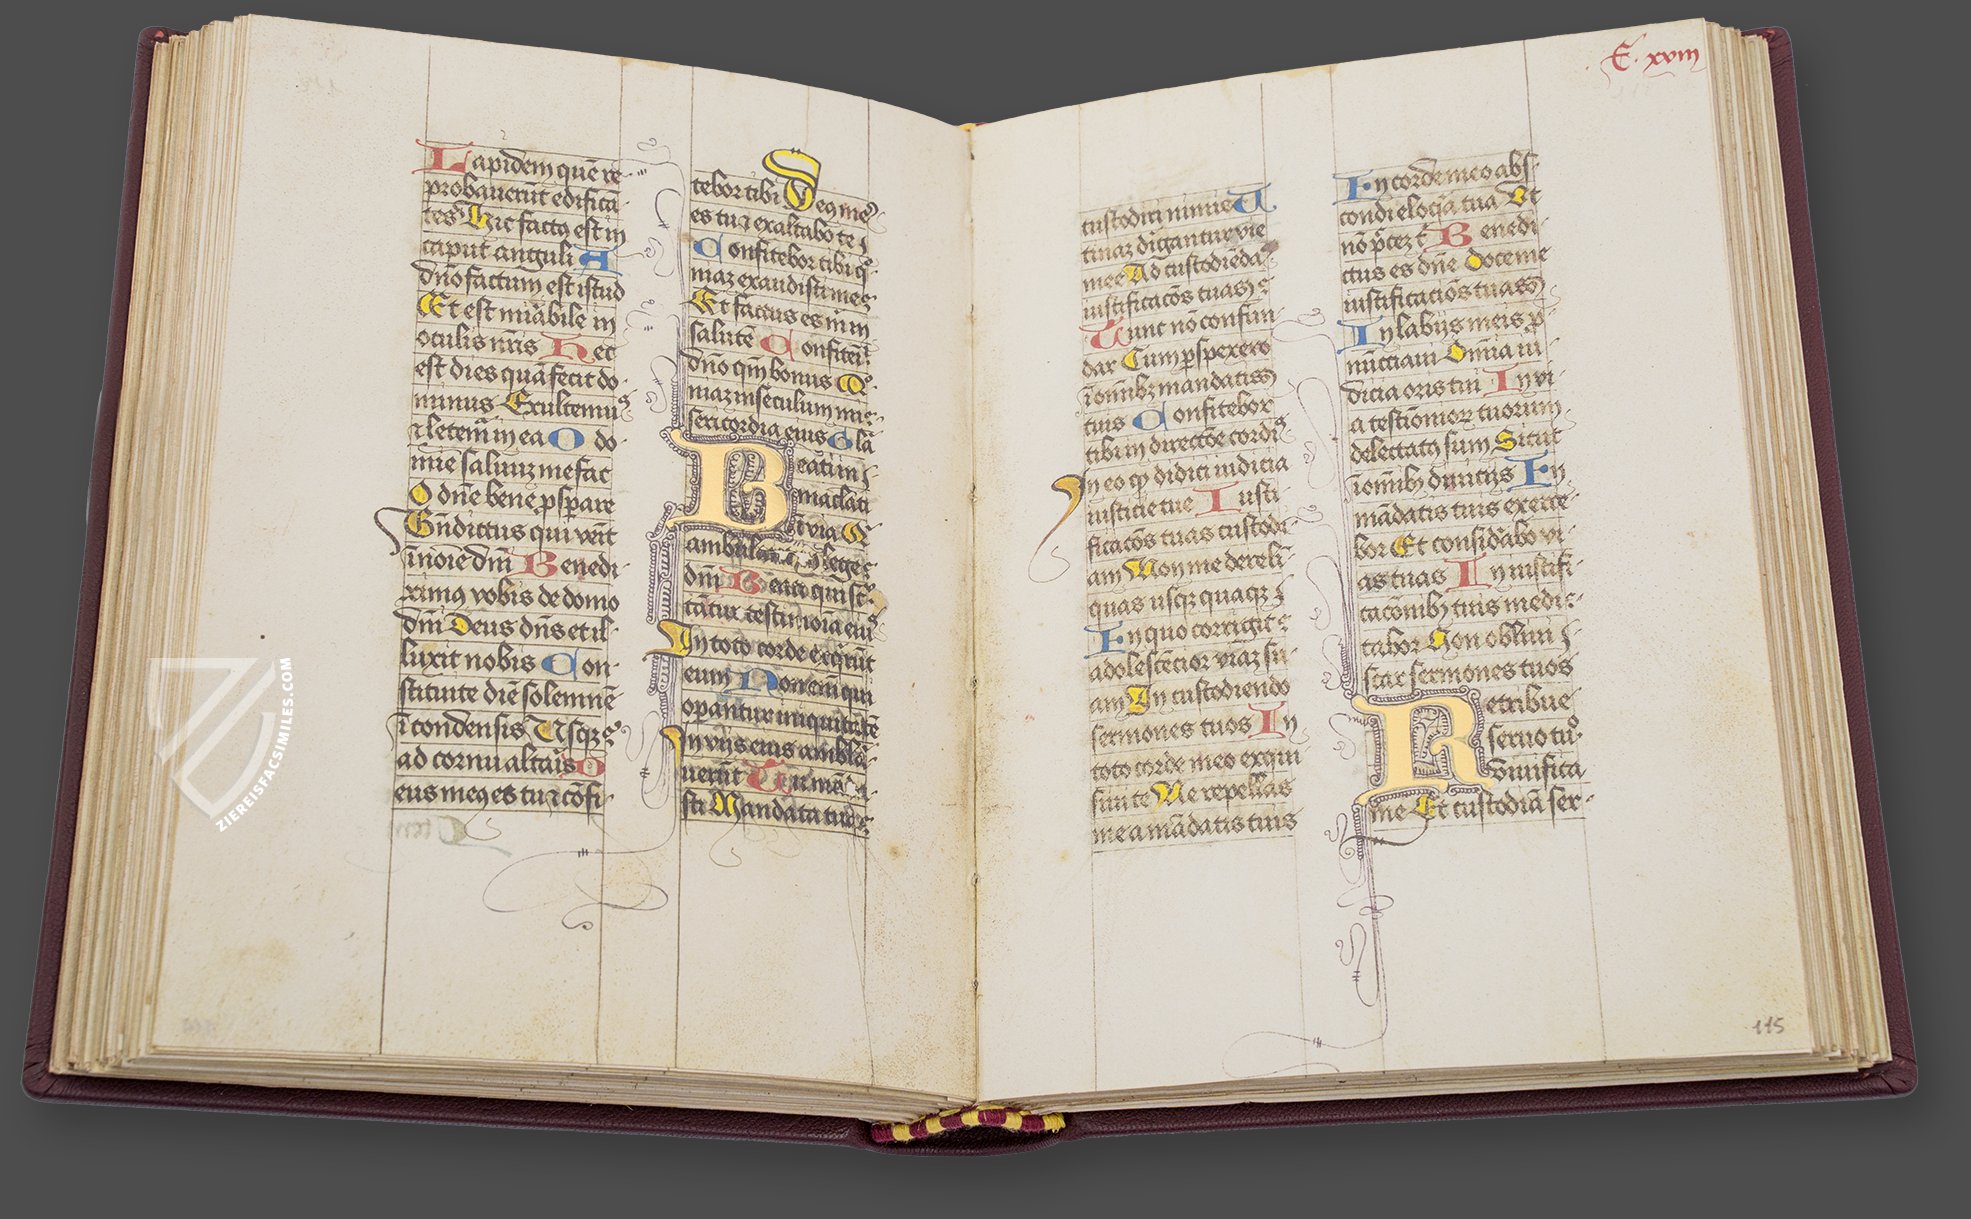 Lapidem quē re
probauerūt edifica
tes Hic factꝰ est in
caput anguli A
dn̄o factum est istud
Et est mirabile in
oculis nr̄is Hec
est dies quā fecit do
minus Exultemꝰ
⁊ letem̄ in ea O do
mīe saluū me fac
O dn̄e bene ꝓspare
Bn̄dictus qui venit
ī noīe dnī Benedi
ximꝰ vobis de domo
dnī Deus dn̄s et il
luxit nobis Con
stituite diē solemnē
ī condensis Usqꝫ
ad cornu altaris D
eus meꝰ es tu ⁊ cōfi
tebor tibi Deꝰ meꝰ
es tu ⁊ exaltabo te
Confitebor tibi qꝫ
exaudisti me
Et factus es m in
salutē Confitem̄
dn̄o qm̄ bonus Qꝫ
in seculum mi
sericordia eius Gl̄a
Beati in
maclati
ī via Q
ambulant ī lege
dnī Beati qui sc
tātur testimōia eiꝰ
In toto corde exqrūt
eum Non em̄ qui
opantur iniquitatē
In viis eius ambla
uerūt Tu mā
sti Mandata tua
E. xviii
custodiri nimis U
tinā dirigantur vie
mee Ad custodiēda
iustificacōs tuas
Tunc nō confun
dar Cum ꝑspexero
ī omībꝫ mandatis
tuis Confitebor
tibi in directōe cordis
In eo qꝫ didici iudicia
iusticie tue Iusti
ficacōs tuas custodi
am Non me dereli
quas usqꝫ quaqꝫ
In quo corrigit
adolescēcior viā su
am In custodiendo
sermones tuos In
toto corde meo exqui
siui te Ne repellas
me a mādatis tuis
In corde meo abs
condi eloqia tua Ut
nō pctez t Benedi
ctus es dn̄e Doce me
iustificatiōs tuas
In labijs meis ꝓ
nūctiaui Om̄ia iu
dicia oris tui In vi
a testiōnior tuorum
delectatꝰ sum Sicut
ī omībꝫ diuicijs In
mādatis tuis exerce
bor Et considabo vi
as tuas In iustifi
cacōnibꝫ tuis medi
tabor Non obliui
scar sermones tuos
Retribue
seruo tuo
Viuifica
me Et custodiā ser
115
ZIEREISFACSIMILES.COM